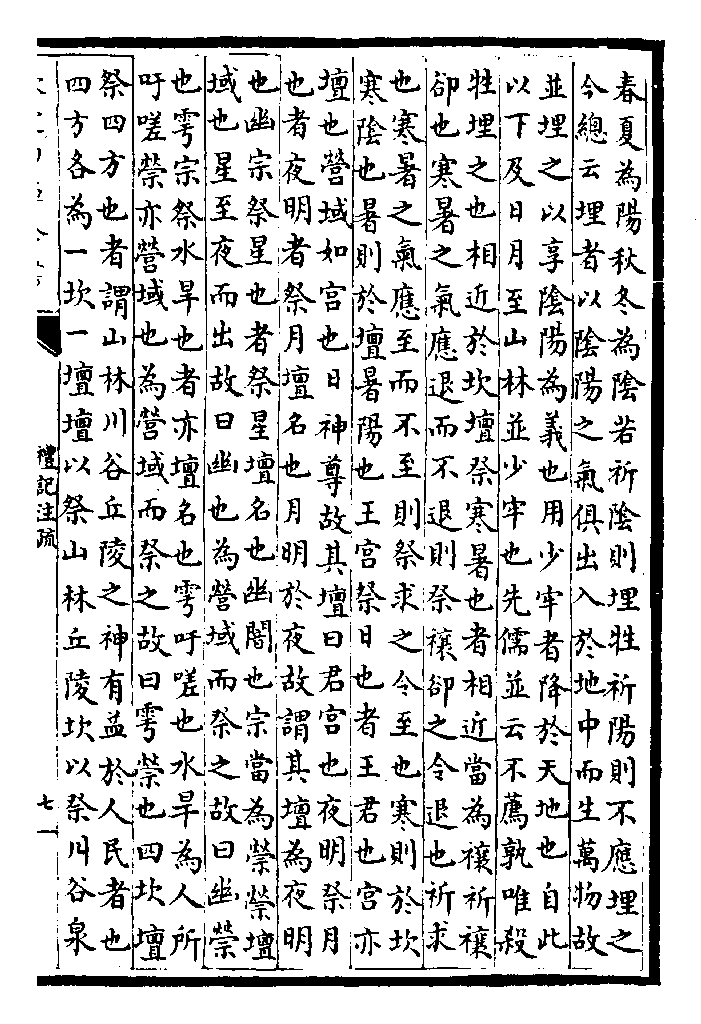 春夏為陽秋冬為陰若祈陰則埋牲祈陽則不應埋之
今總云埋者以陰陽之氣俱出入於地中而生萬物故
並埋之以享陰陽為義也用少牢者降於天地也自此
以下及日月至山林並少牢也先儒並云不薦孰唯殺
牲埋之也相近於坎壇祭寒暑也者相近當為禳祈禳
卻也寒暑之氣應退而不退則祭禳卻之令退也祈求
也寒暑之氣應至而不至則祭求之令至也寒則於坎
寒陰也暑則於壇暑陽也王宮祭日也者王君也宮亦
壇也營域如宮也日神尊故其壇曰君宮也夜明祭月
也者夜明者祭月壇名也月明於夜故謂其壇為夜明
也幽宗祭星也者祭星壇名也幽闇也宗當為禜禜壇
域也星至夜而出故曰幽也為營域而祭之故曰幽禜
也雩宗祭水旱也者亦壇名也雩吁嗟也水旱為人所
吁嗟禜亦營域也為營域而祭之故曰雩禜也四坎壇
祭四方也者謂山林川谷丘陵之神有益於人民者也
四方各為一坎一壇壇以祭山林丘陵坎以祭川谷泉
禮記注疏
七